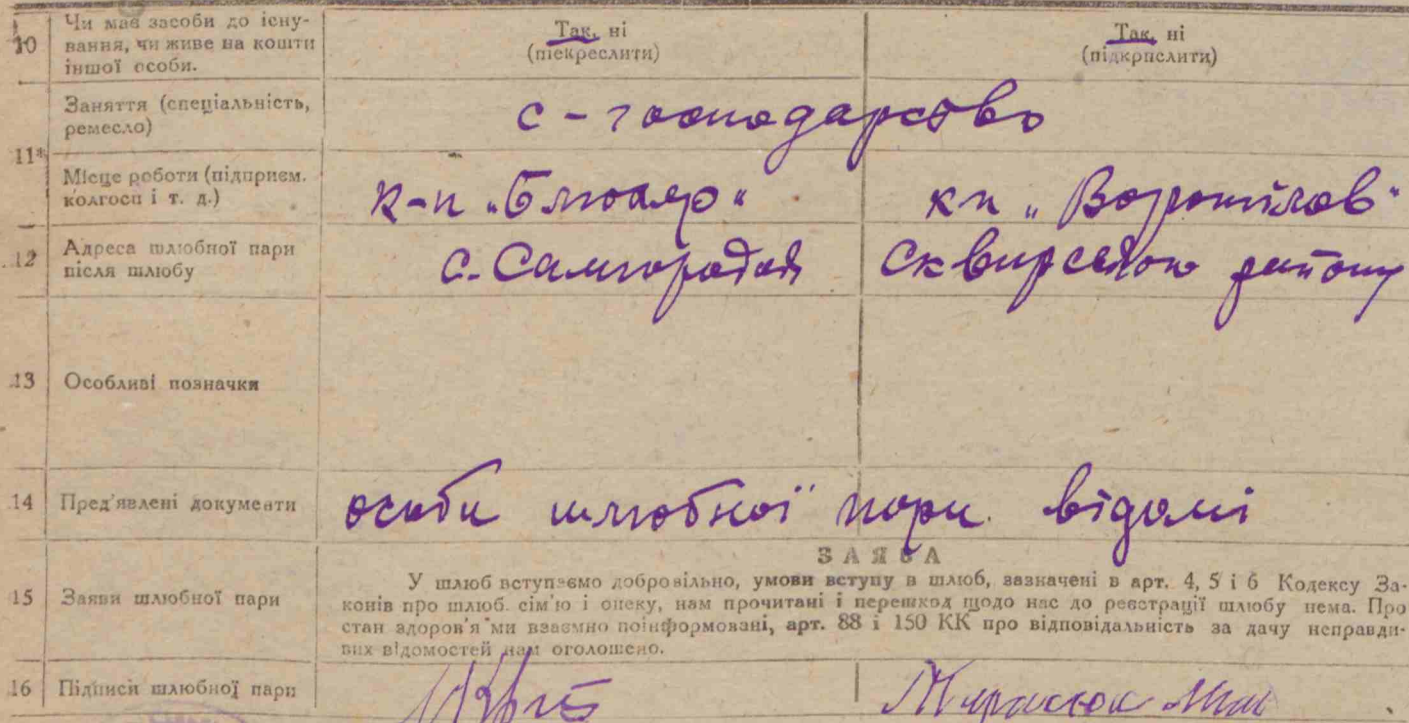 10 Чи має засоби до існу-
вання, чи живе на кошти
іншої особи.
Так, ні
(піекреслити)
Так, ні
(підкрислити)
11*
Заняття (спеціальність,
ремесло)
с-господарство
Місце роботи (підприєм.
колгосп і т. д.)
к-п „Блюхер“
кп „Ворошілов“
12 Адреса шлюбної пари
після шлюбу
с. Самгородок Сквирського району
13 Особливі позначки
14 Пред'явлені документи
особи шлюбної пори. відомі
15 Заяви шлюбної пари
ЗАЯВА
У шлюб вступаємо добровільно, умови вступу в шлюб, зазначені в арт. 4, 5 і 6 Кодексу За-
конів про шлюб. сім'ю і опеку, нам прочитані і перешкод щодо нас до реєстрації шлюбу нема. Про
стан здоров'я ми взаємно поінформовані, арт. 88 і 150 КК про відповідальність за дачу неправди-
вих відомостей нам оголошено.
16 Підписи шлюбної пари